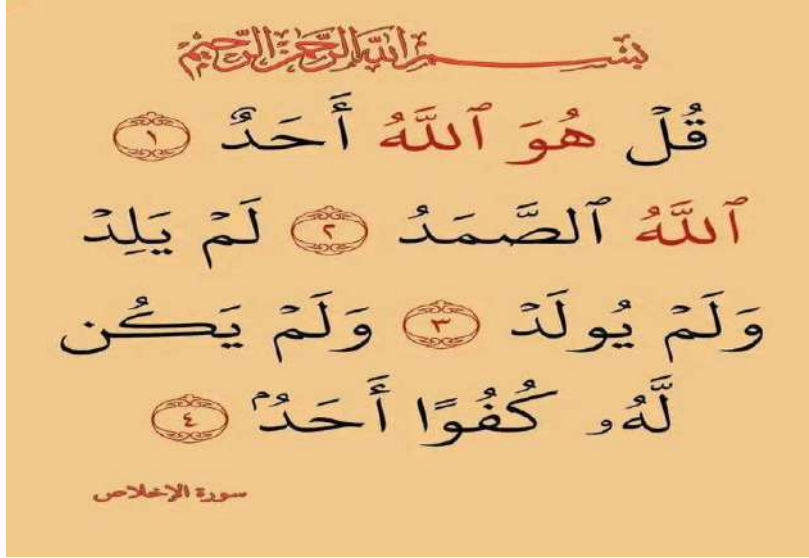 بِسْمِ اللَّهِ الرَّحْمَٰنِ الرَّحِيمِ
قُلْ هُوَ ٱللَّهُ أَحَدٌ ١
ٱللَّهُ ٱلصَّمَدُ ٢ لَمْ يَلِدْ
وَلَمْ يُولَدْ ٣ وَلَمْ يَكُن
لَّهُۥ كُفُوًا أَحَدُۢ ٤
سورة الإخلاص